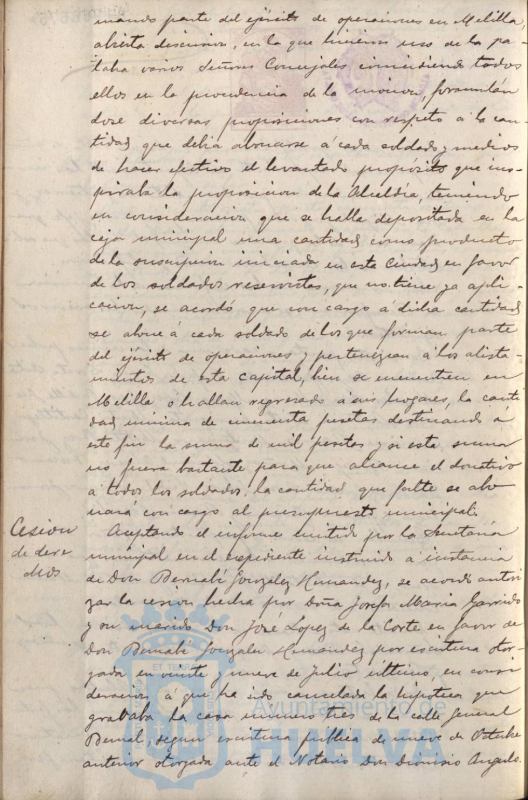 mando parte del ejército de operaciones en Melilla,
abierta discusion, en la que hicieron uso de la pa-
labra varios Señores Concejales coincidiendo todos
ellos en la procedencia de la mocion, formulán
dose diversas proposiciones con respeto á la can-
tidad que debia abonarse á cada soldado y medios
de hacer efectivo el levantado propósito que ins-
piraba la proposicion de la Alcaldia, teniendo
en consideracion que se halla depositada en la
caja municipal una cantidad como producto
de la suscripcion iniciada en esta Ciudad en favor
de los soldados reservistas, que no tiene ya apli-
cacion, se acordó que con cargo á dicha cantidad
se abone á cada soldado de los que forman parte
del ejército de operaciones y pertenezcan á los alista-
mientos de esta capital, bien se encuentren en
Melilla ó hallan regresado á sus hogares, la canti
dad minima de cincuenta pesetas destinando á
este fin la suma de mil pesetas y si esta suma
no fuera bastante para que alcance el donativo
á todos los soldados, la cantidad que falte se abo
nará con cargo al presupuesto municipal.
Cesion
de dere
chos
Aceptando el informe emitido por la Secretaría
municipal en el expediente instruido á instancia
de Don Bernabé Gonzalez Hernandez, se acordó autori
zar la cesion hecha por Doña Josefa Maria Garrido
y su marido Don José Lopez de la Corte en favor de
Don Bernabé Gonzalez Hernandez por escritura otor-
gada en veinte y nueve de Julio último, en consi
deracion á que ha sido cancelada la hipoteca que
grababa la casa número tres de la calle General
Bernal, segun escritura pública de nueve de Octubre
anterior otorgada ante el Notario Don Dionisio Angulo.
Ayuntamiento de
HUELVA